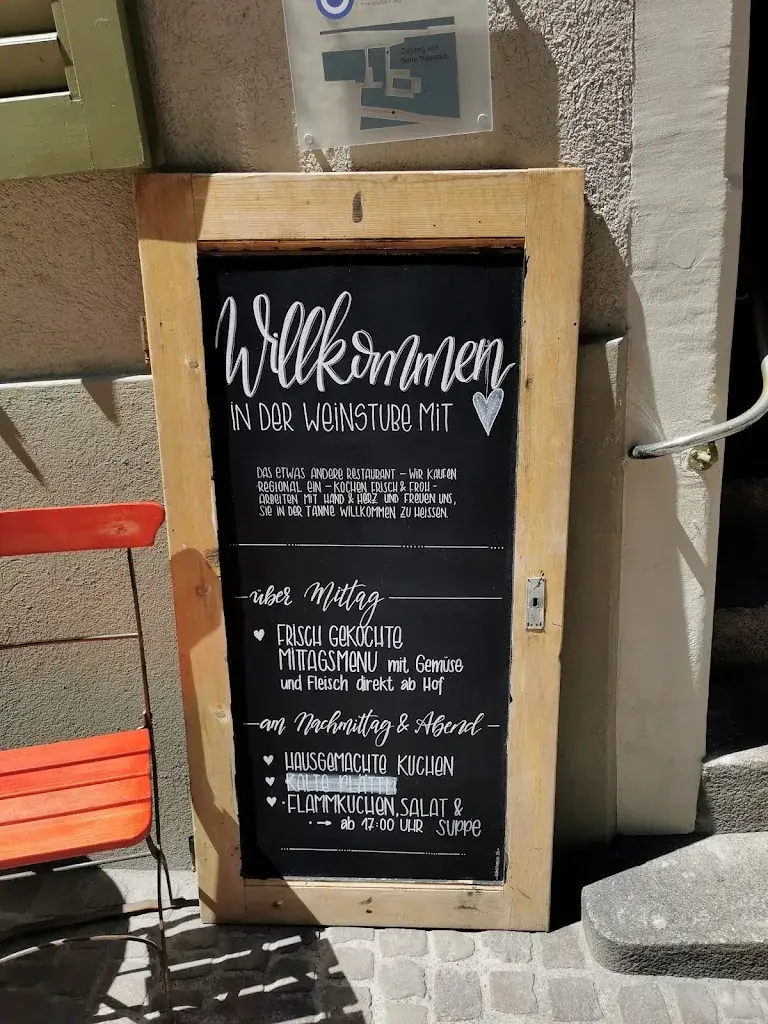 Immobilien AG
Zugang von
Seite Nietblach
Willkommen
IN DER WEINSTUBE MIT
DAS ETWAS ANDERE RESTAURANT – WIR KAUFEN
REGIONAL EIN – KOCHEN FRISCH & FROH –
ARBEITEN MIT HAND & HERZ UND FREUEN UNS,
SIE IN DER TANNE WILLKOMMEN ZU HEISSEN.
über Mittag
FRISCH GEKOCHTE
MITTAGSMENU mit Gemüse
und Fleisch direkt ab Hof
am Nachmittag & Abend
HAUSGEMACHTE KUCHEN
KALTE PLÄTTLI
FLAMMKUCHEN, SALAT &
→ ab 17:00 UHR SUPPE